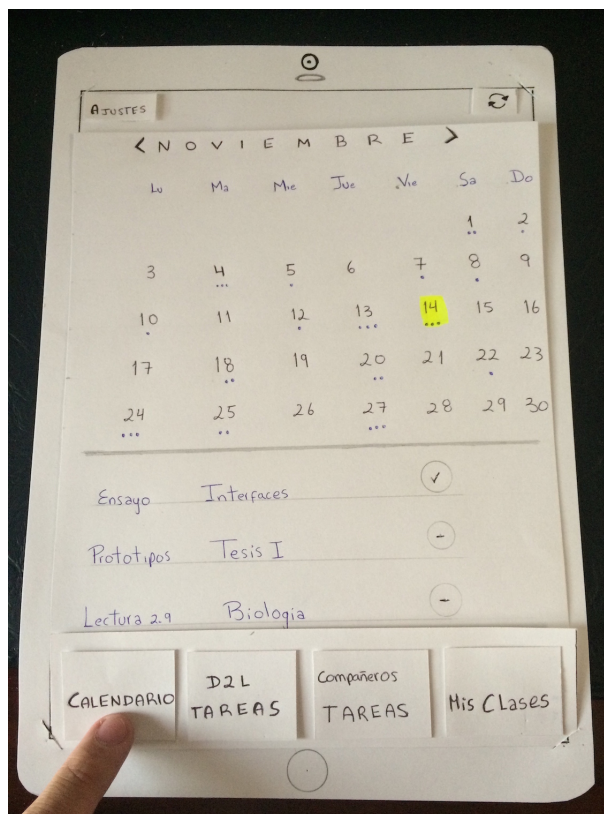 AJUSTES
< NOVIEMBRE >
Lu Ma Mie Jue Vie Sa Do
1 2
3 4 5 6 7 8 9
10 11 12 13 14 15 16
17 18 19 20 21 22 23
24 25 26 27 28 29 30
Ensayo Interfaces
Prototipos Tesis I
Lectura 2.9 Biologia
CALENDARIO
D2L
TAREAS
Compañeros
TAREAS
Mis Clases